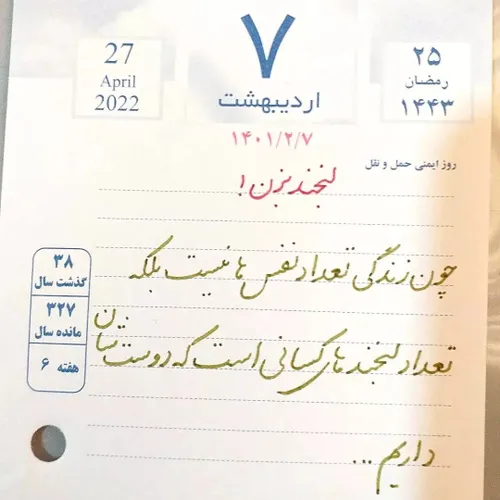 27
April
2022
۷
اردیبهشت
۲۵
رمضان
۱۴۴۳
۱۴۰۱/۲/۷
روز ایمنی حمل و نقل
لبخند بزن!
چون زندگی تعداد نفس ها نیست بلکه
تعداد لبخند های کسانی است که دوستشان
داریم ...
۳۸
گذشت سال
۳۲۷
مانده سال
هفته ۶